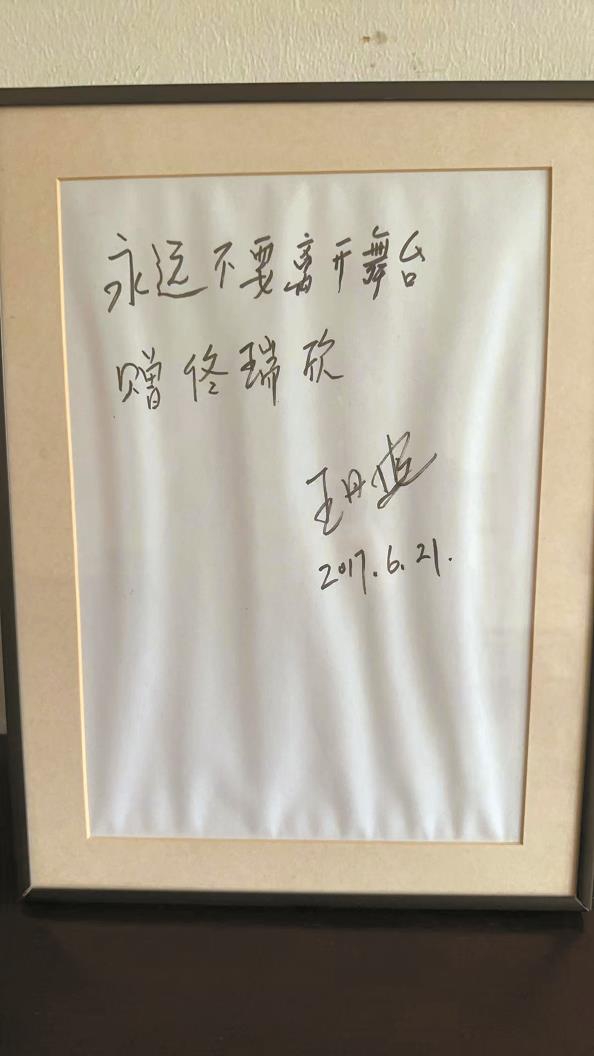 永远不要离开舞台
赠佟瑞欣
王丹
2017.6.21.